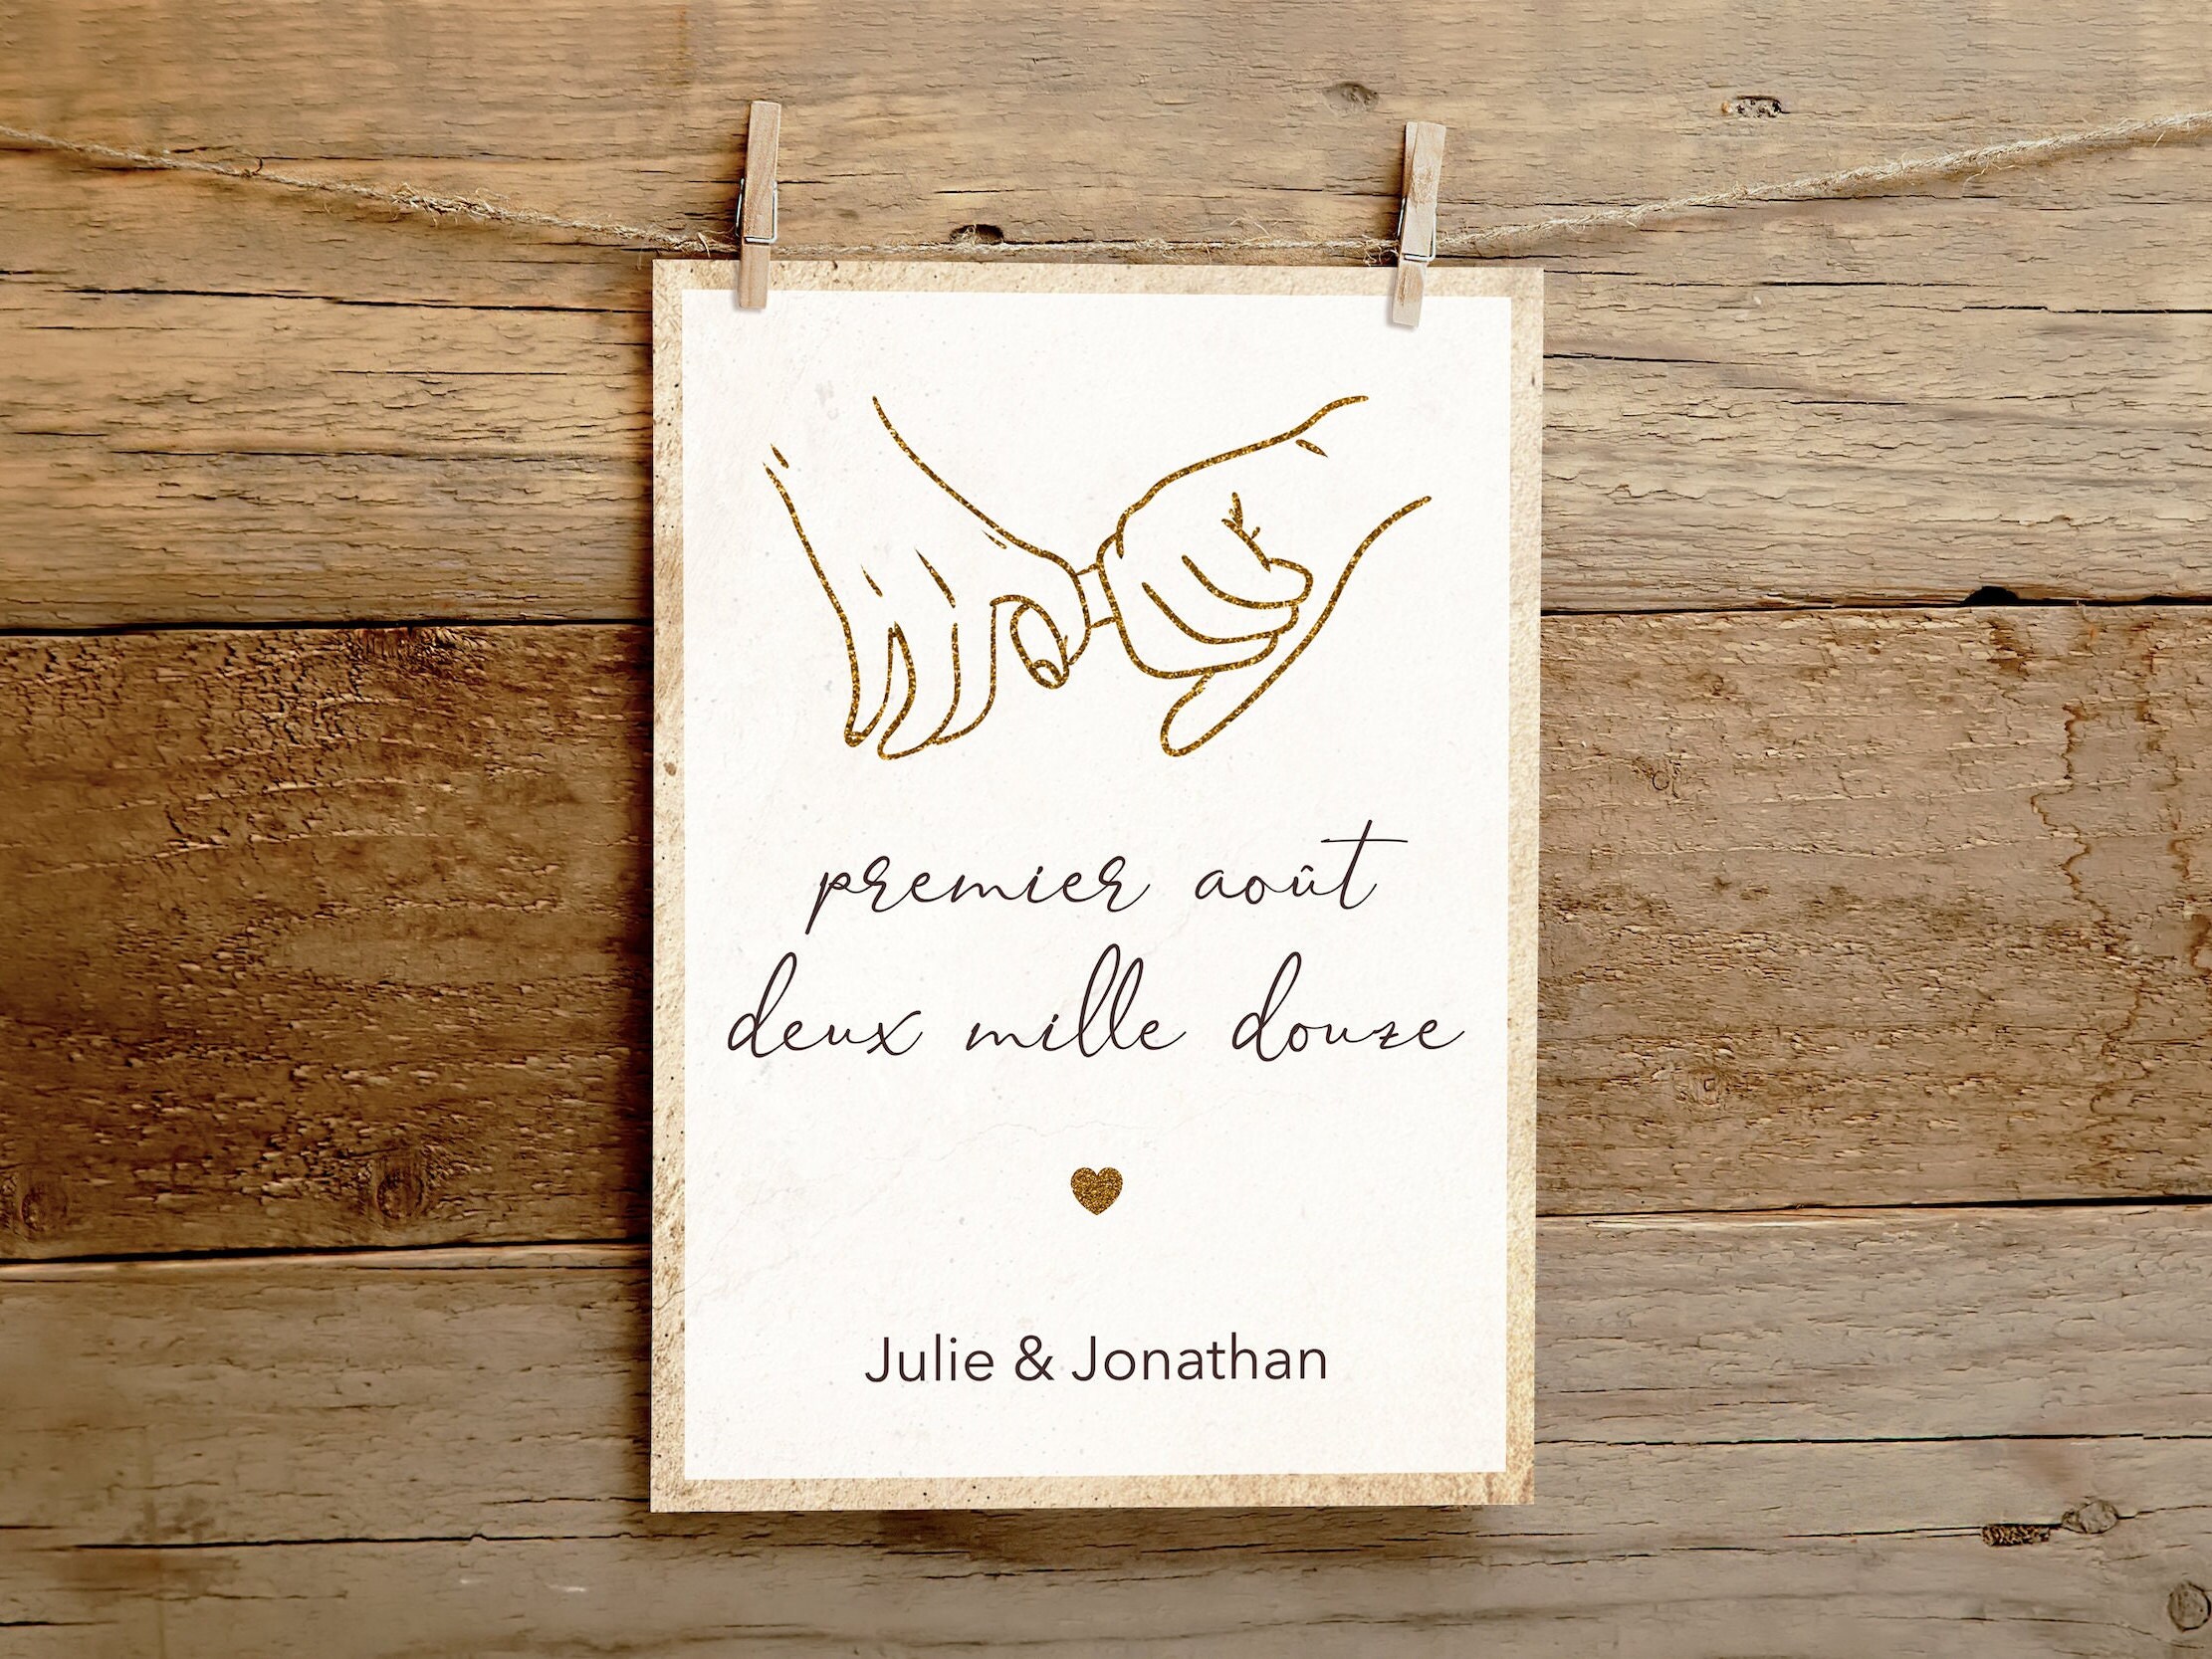 premier août
deux mille douze
Julie & Jonathan